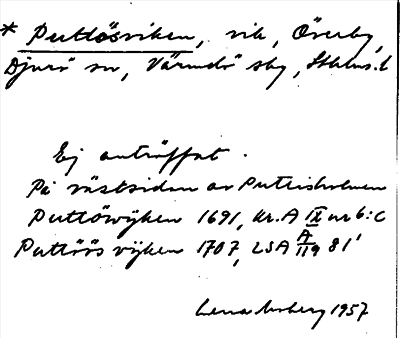 * Puttösviken, vik, Överby,
Djurö sn, Värmdö sby, Sthlms.l
Ej anträffat.
På västsidan av Putisholmen
Puttöwijken 1691, kr. A IX nr 6:c
Puttöös vijken 1707, LSA A 119 81'
Lena 1957